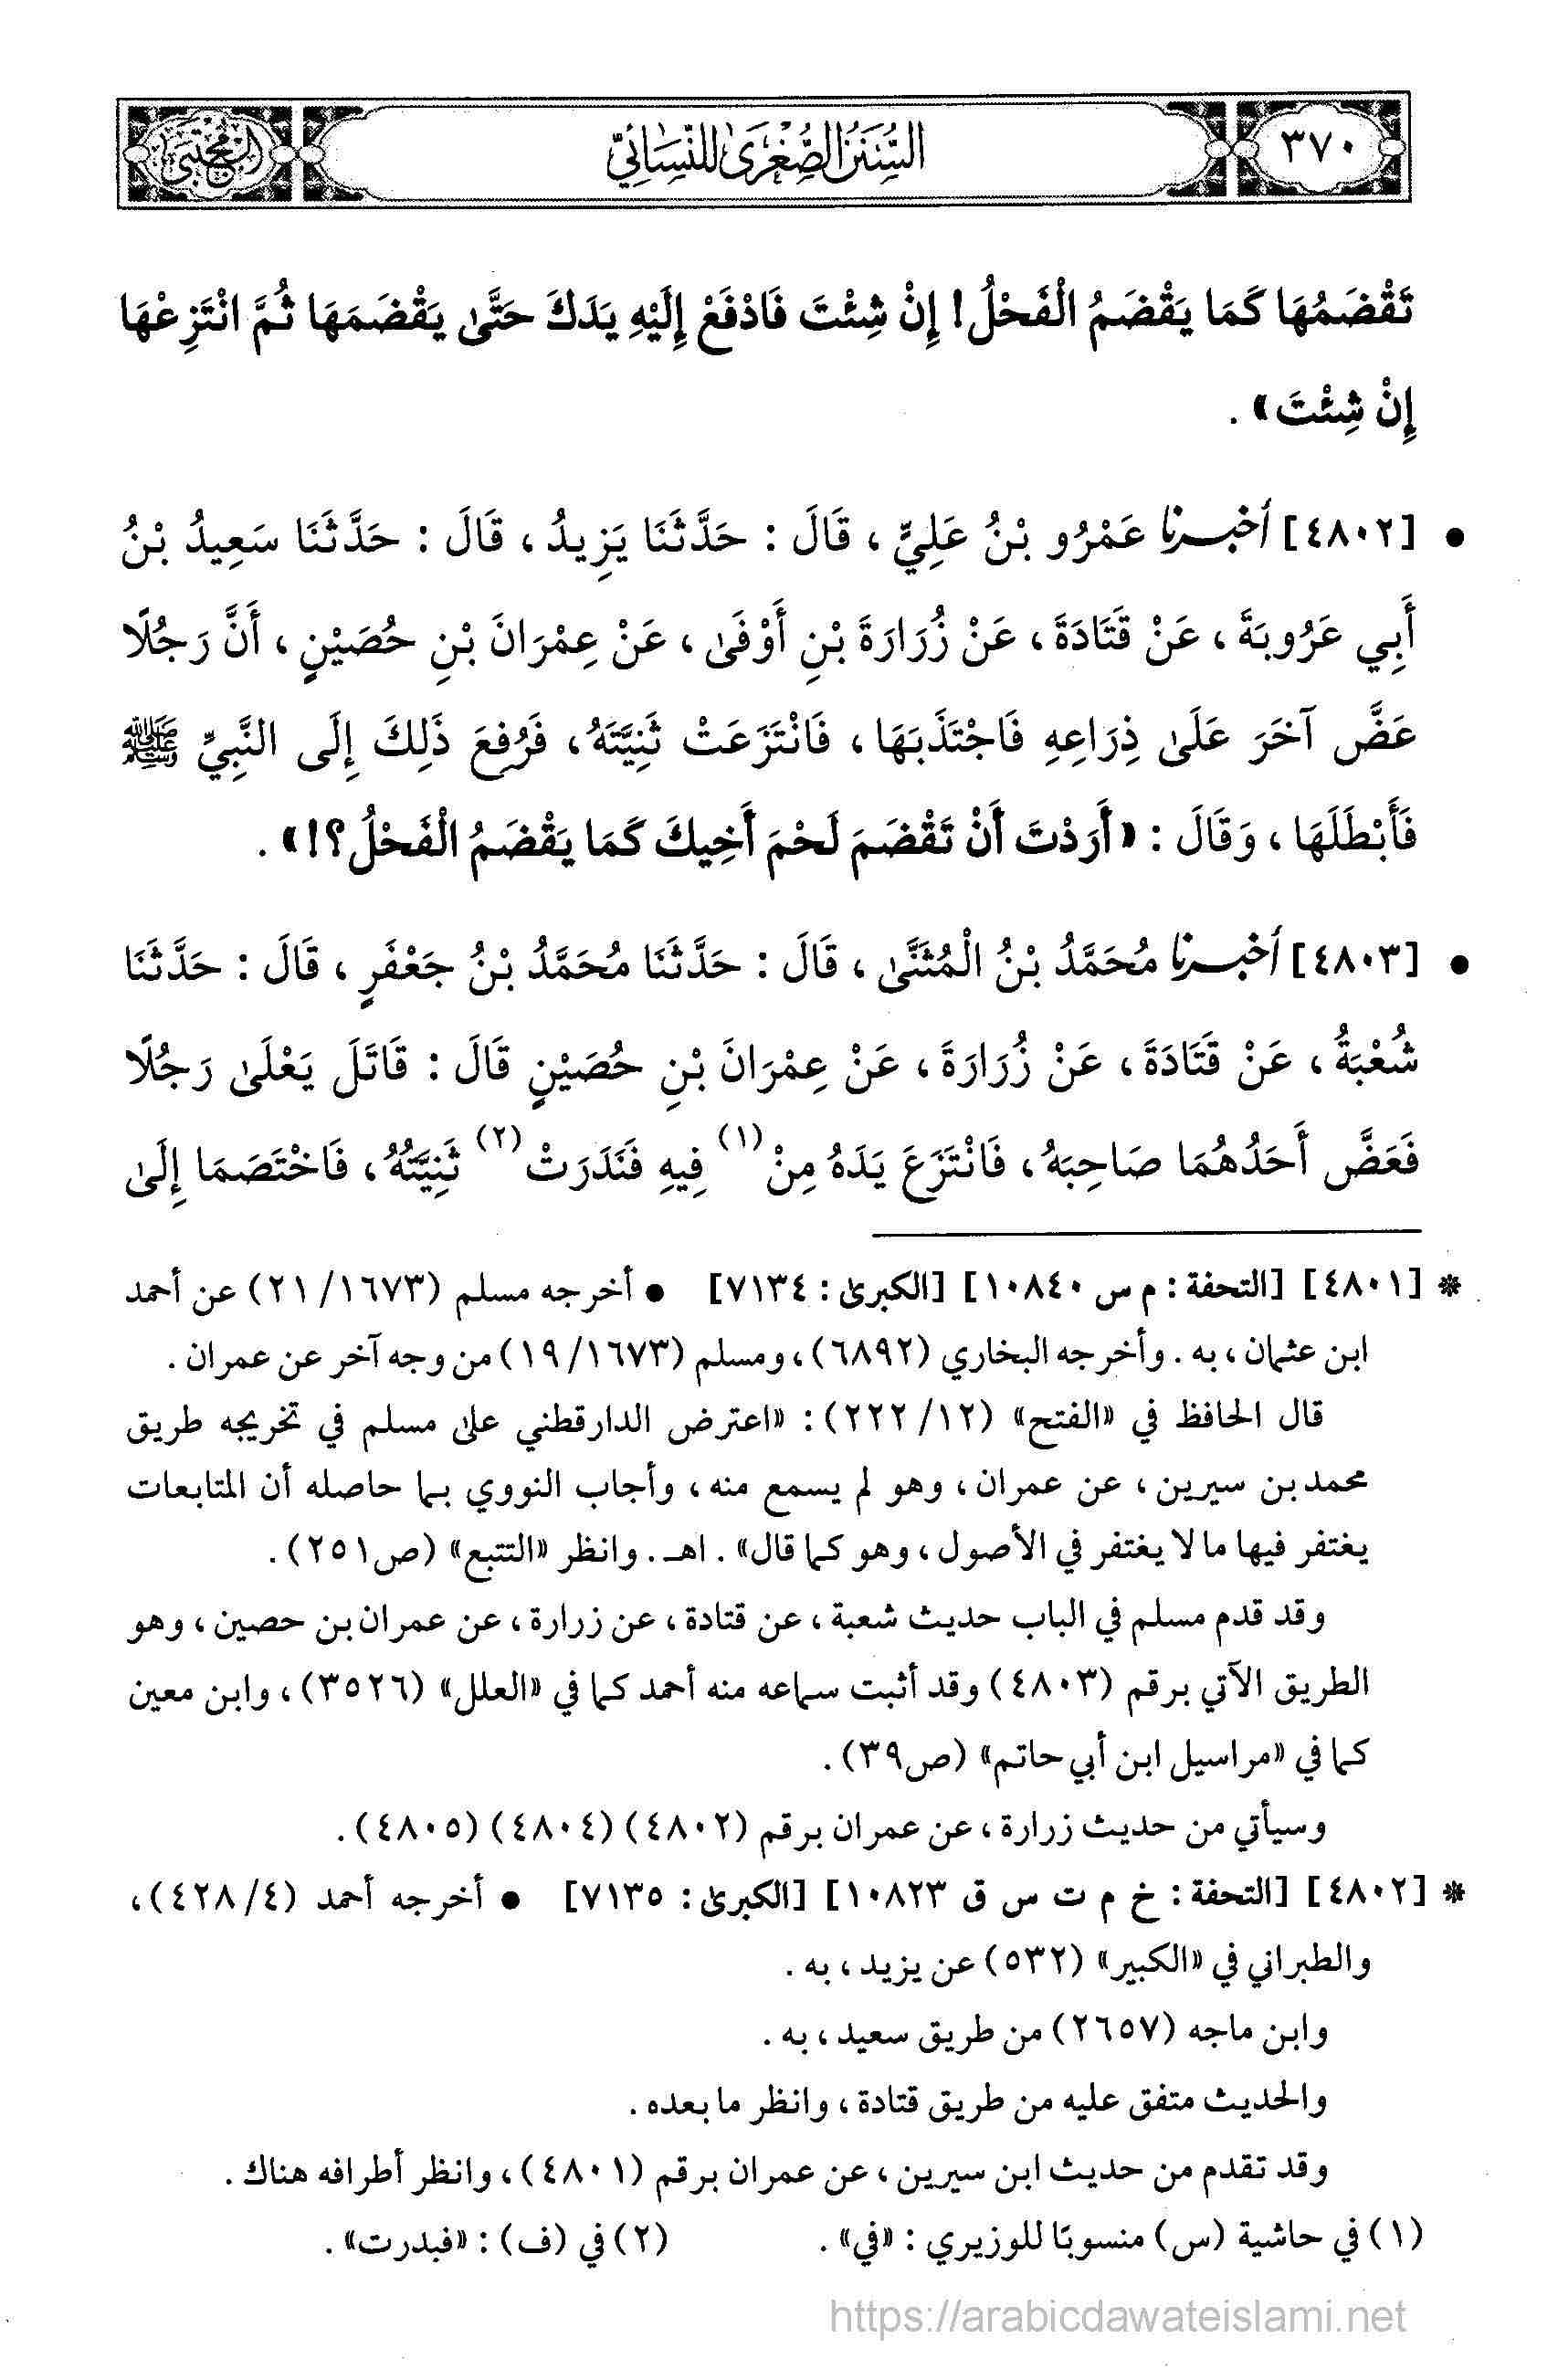 ٣٧٠
السُّنَنُ الصُّغْرَىٰ لِلنَّسَائِيِّ
المجتبى
تَقْضَمُهَا كَمَا يَقْضَمُ الْفَحْلُ! إِنْ شِئْتَ فَادْفَعْ إِلَيْهِ يَدَكَ حَتَّىٰ يَقْضَمَهَا ثُمَّ انْتَزِعْهَا
إِنْ شِئْتَ» .
• [٤٨٠٢] أخبرنا عَمْرُو بْنُ عَلِيٍّ ، قَالَ : حَدَّثَنَا يَزِيدُ ، قَالَ : حَدَّثَنَا سَعِيدُ بْنُ
أَبِي عَرُوبَةَ ، عَنْ قَتَادَةَ ، عَنْ زُرَارَةَ بْنِ أَوْفَىٰ ، عَنْ عِمْرَانَ بْنِ حُصَيْنٍ ، أَنَّ رَجُلًا
عَضَّ آخَرَ عَلَىٰ ذِرَاعِهِ فَاجْتَذَبَهَا ، فَانْتَزَعَتْ ثَنِيَّتَهُ ، فَرُفِعَ ذَلِكَ إِلَى النَّبِيِّ ﷺ
فَأَبْطَلَهَا ، وَقَالَ : «أَرَدْتَ أَنْ تَقْضَمَ لَحْمَ أَخِيكَ كَمَا يَقْضَمُ الْفَحْلُ؟!» .
• [٤٨٠٣] أخبرنا مُحَمَّدُ بْنُ الْمُثَنَّىٰ ، قَالَ : حَدَّثَنَا مُحَمَّدُ بْنُ جَعْفَرٍ ، قَالَ : حَدَّثَنَا
شُعْبَةُ ، عَنْ قَتَادَةَ ، عَنْ زُرَارَةَ ، عَنْ عِمْرَانَ بْنِ حُصَيْنٍ قَالَ : قَاتَلَ يَعْلَىٰ رَجُلًا
فَعَضَّ أَحَدُهُمَا صَاحِبَهُ ، فَانْتَزَعَ يَدَهُ مِنْ (١) فِيهِ فَنَدَرَتْ (٢) ثَنِيَّتُهُ ، فَاخْتَصَمَا إِلَىٰ
* [٤٨٠١] [التحفة : م س ١٠٨٤٠] [الكبرىٰ : ٧١٣٤] • أخرجه مسلم (١٦٧٣/ ٢١) عن أحمد
ابن عثمان ، به . وأخرجه البخاري (٦٨٩٢) ، ومسلم (١٦٧٣/ ١٩) من وجه آخر عن عمران .
قال الحافظ في «الفتح» (١٢/ ٢٢٢) : «اعترض الدارقطني علىٰ مسلم في تخريجه طريق
محمد بن سيرين ، عن عمران ، وهو لم يسمع منه ، وأجاب النووي بما حاصله أن المتابعات
يغتفر فيها ما لا يغتفر في الأصول ، وهو كما قال» . اهـ . وانظر «التتبع» (ص٢٥١) .
وقد قدم مسلم في الباب حديث شعبة ، عن قتادة ، عن زرارة ، عن عمران بن حصين ، وهو
الطريق الآتي برقم (٤٨٠٣) وقد أثبت سماعه منه أحمد كما في «العلل» (٣٥٢٦) ، وابن معين
كما في «مراسيل ابن أبي حاتم» (ص٣٩) .
وسيأتي من حديث زرارة ، عن عمران برقم (٤٨٠٢) (٤٨٠٤) (٤٨٠٥) .
* [٤٨٠٢] [التحفة : خ م ت س ق ١٠٨٢٣] [الكبرىٰ : ٧١٣٥] • أخرجه أحمد (٤/ ٤٢٨) ،
والطبراني في «الكبير» (٥٣٢) عن يزيد ، به .
وابن ماجه (٢٦٥٧) من طريق سعيد ، به .
والحديث متفق عليه من طريق قتادة ، وانظر ما بعده .
وقد تقدم من حديث ابن سيرين ، عن عمران برقم (٤٨٠١) ، وانظر أطرافه هناك .
(١) في حاشية (س) منسوبًا للوزيري : «في» . (٢) في (ف) : «فبدرت» .
https://arabicdawateislami.net